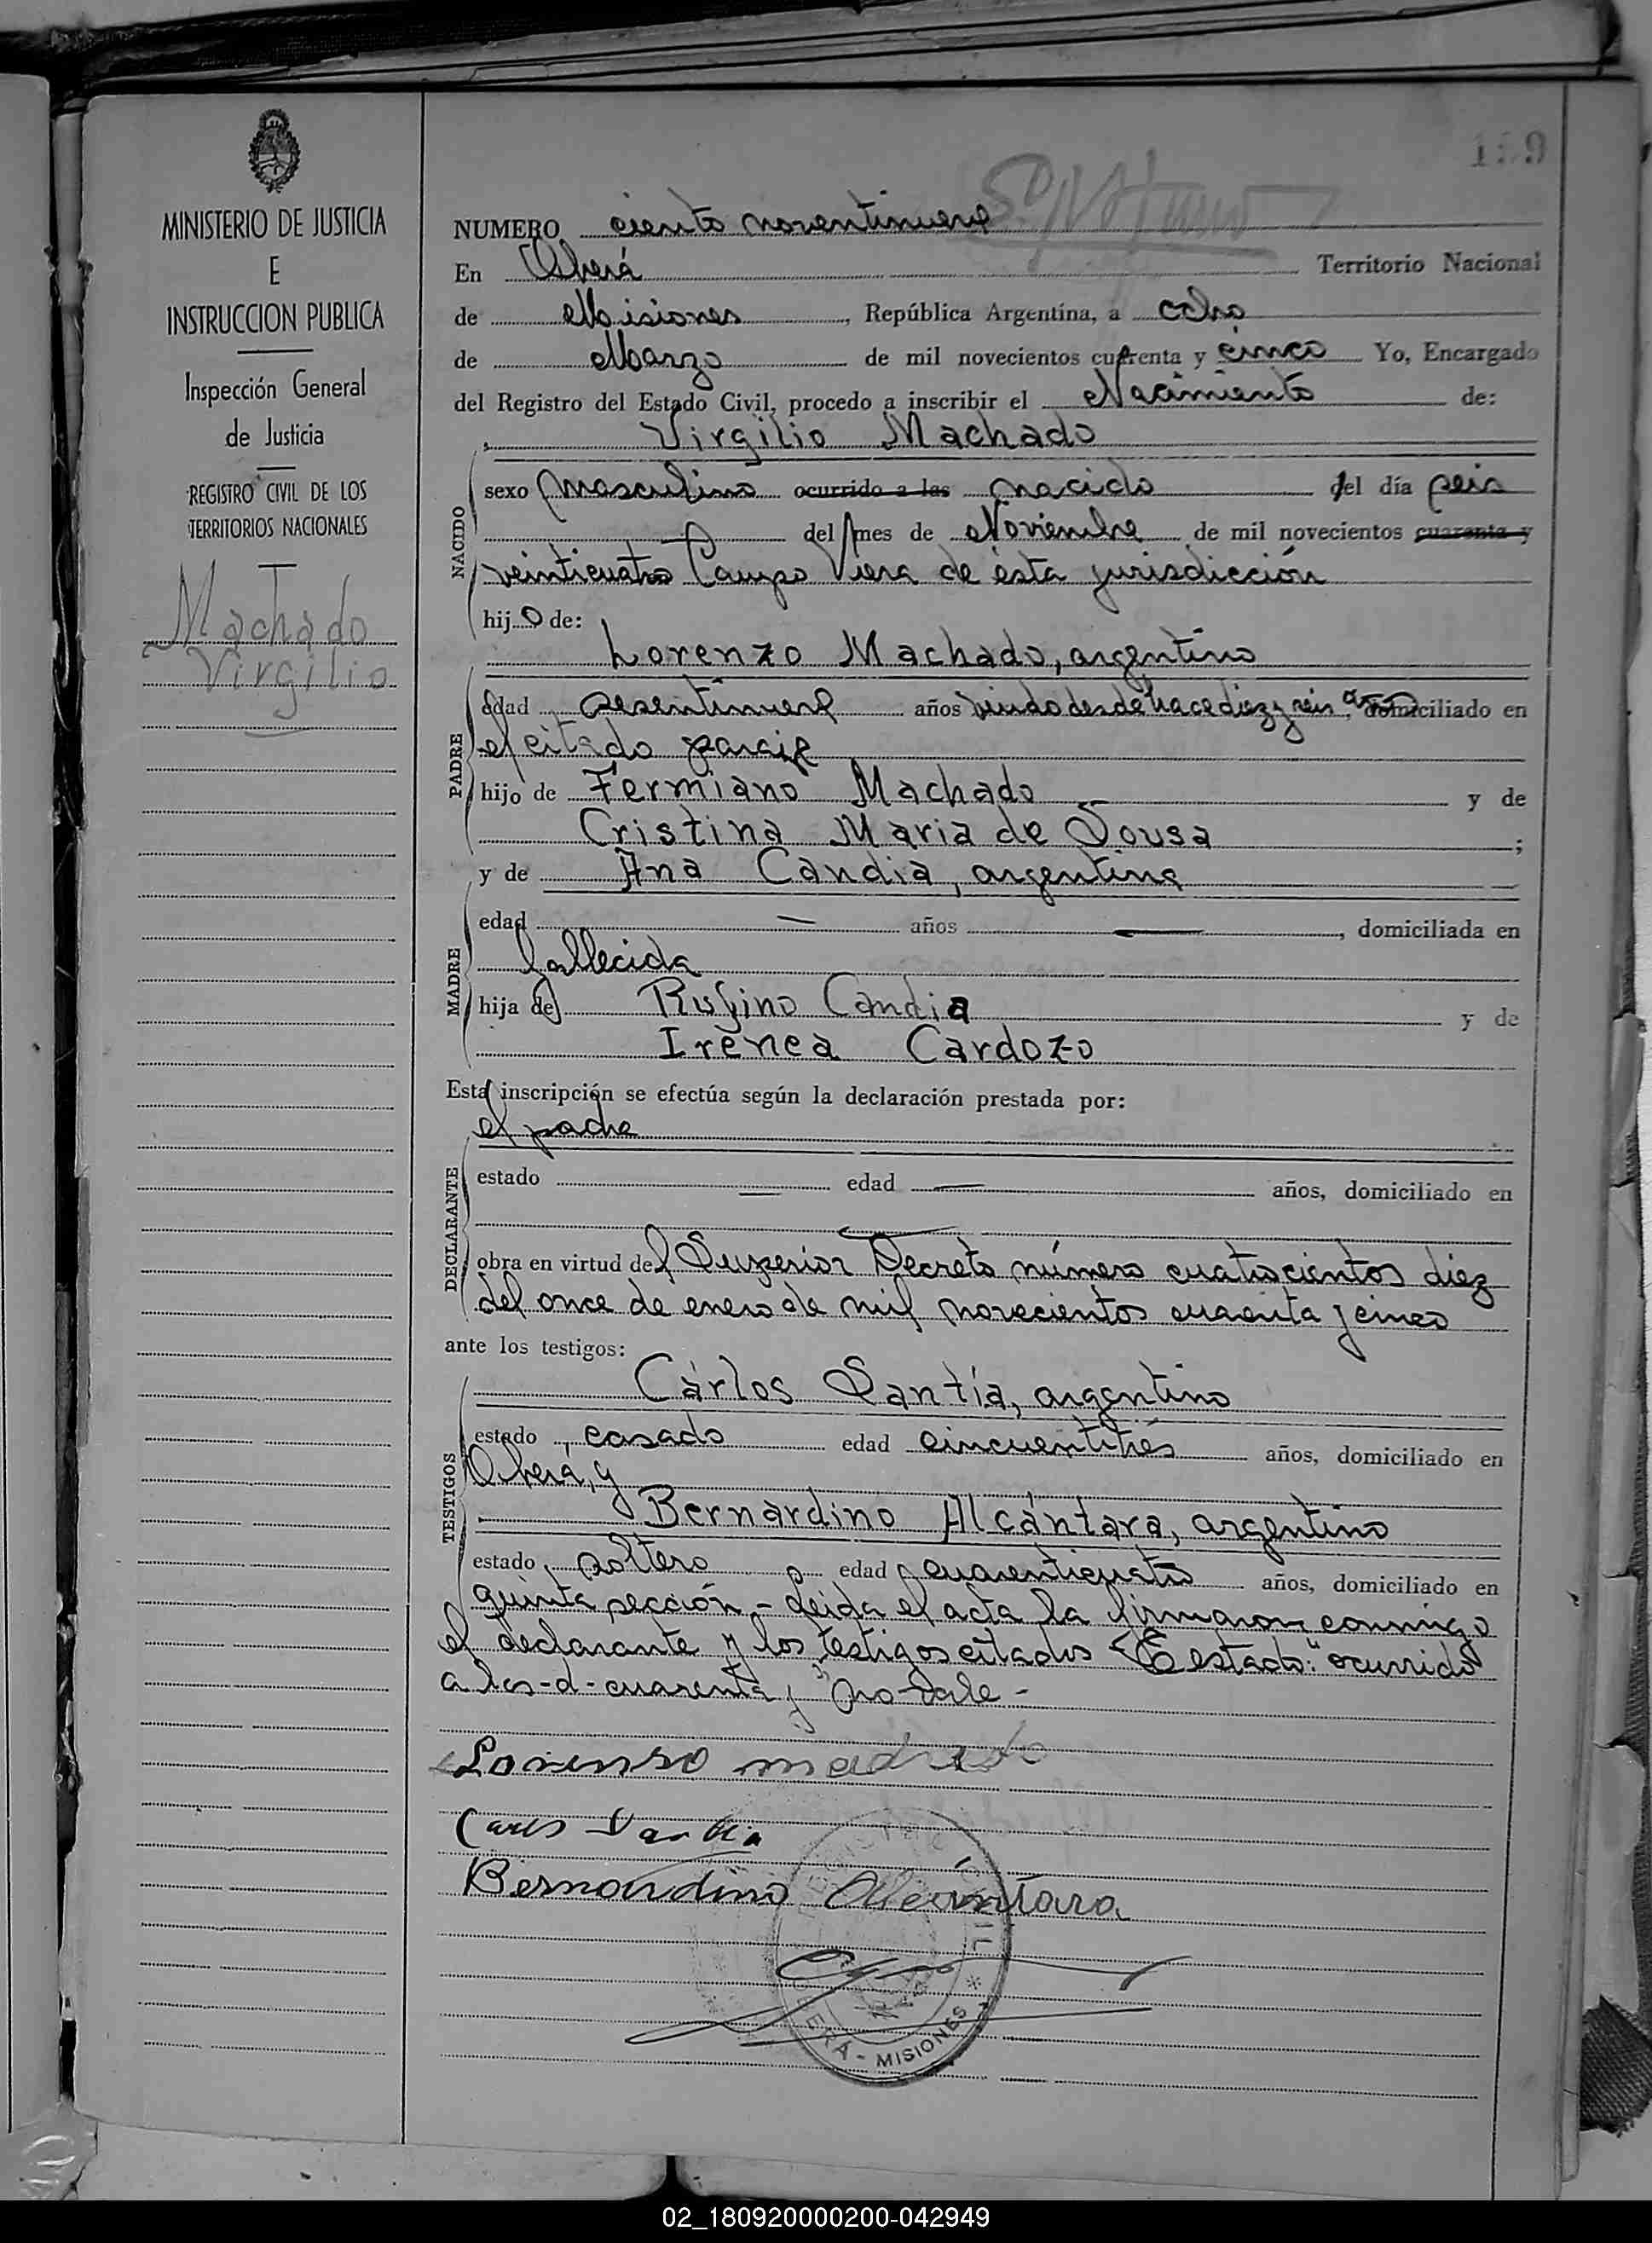 MINISTERIO DE JUSTICIA
E
INSTRUCCION PUBLICA
Inspección General
de Justicia
REGISTRO CIVIL DE LOS
TERRITORIOS NACIONALES
Machado
Virgilio
NUMERO ciento noventinueve
En Oberá Territorio Nacional
de Misiones, República Argentina, a ocho
de Marzo de mil novecientos cuarenta y cinco Yo, Encargado
del Registro del Estado Civil, procedo a inscribir el Nacimiento de:
Virgilio Machado
NACIDO
sexo masculino ocurrido a las nacido el día seis
del mes de Noviembre de mil novecientos cuarenta y
veinticuatro Campo Viera de ésta jurisdicción
hijo de:
Lorenzo Machado, argentino
PADRE
edad sesentinueve años viudo desde hace diez y seis años, domiciliado en
el citado paraje
hijo de Fermiano Machado y de
Cristina Maria de Sousa ;
y de Ana Candia, argentina
MADRE
edad — años —, domiciliada en
fallecida
hija de Rufino Candia y de
Irenea Cardozo
Esta inscripción se efectúa según la declaración prestada por:
el padre
DECLARANTE
estado — edad — años, domiciliado en
obra en virtud del Superior Decreto número cuatrocientos diez
del once de enero de mil novecientos cuarenta y cinco
ante los testigos:
TESTIGOS
Cárlos Santía, argentino
estado, casado edad cincuentitrés años, domiciliado en
Oberá, y
Bernardino Alcántara, argentino
estado, soltero edad cuarenticuatro años, domiciliado en
quinta sección - Leida el acta la firmaron conmigo
el declarante y los testigos citados Testado: "ocurrido
a las - d - cuarenta y" No vale -
Lorenso machado
Carlos Santia
Bernardino Alcántara
ERÁ - MISIONES *
02_180920000200-042949